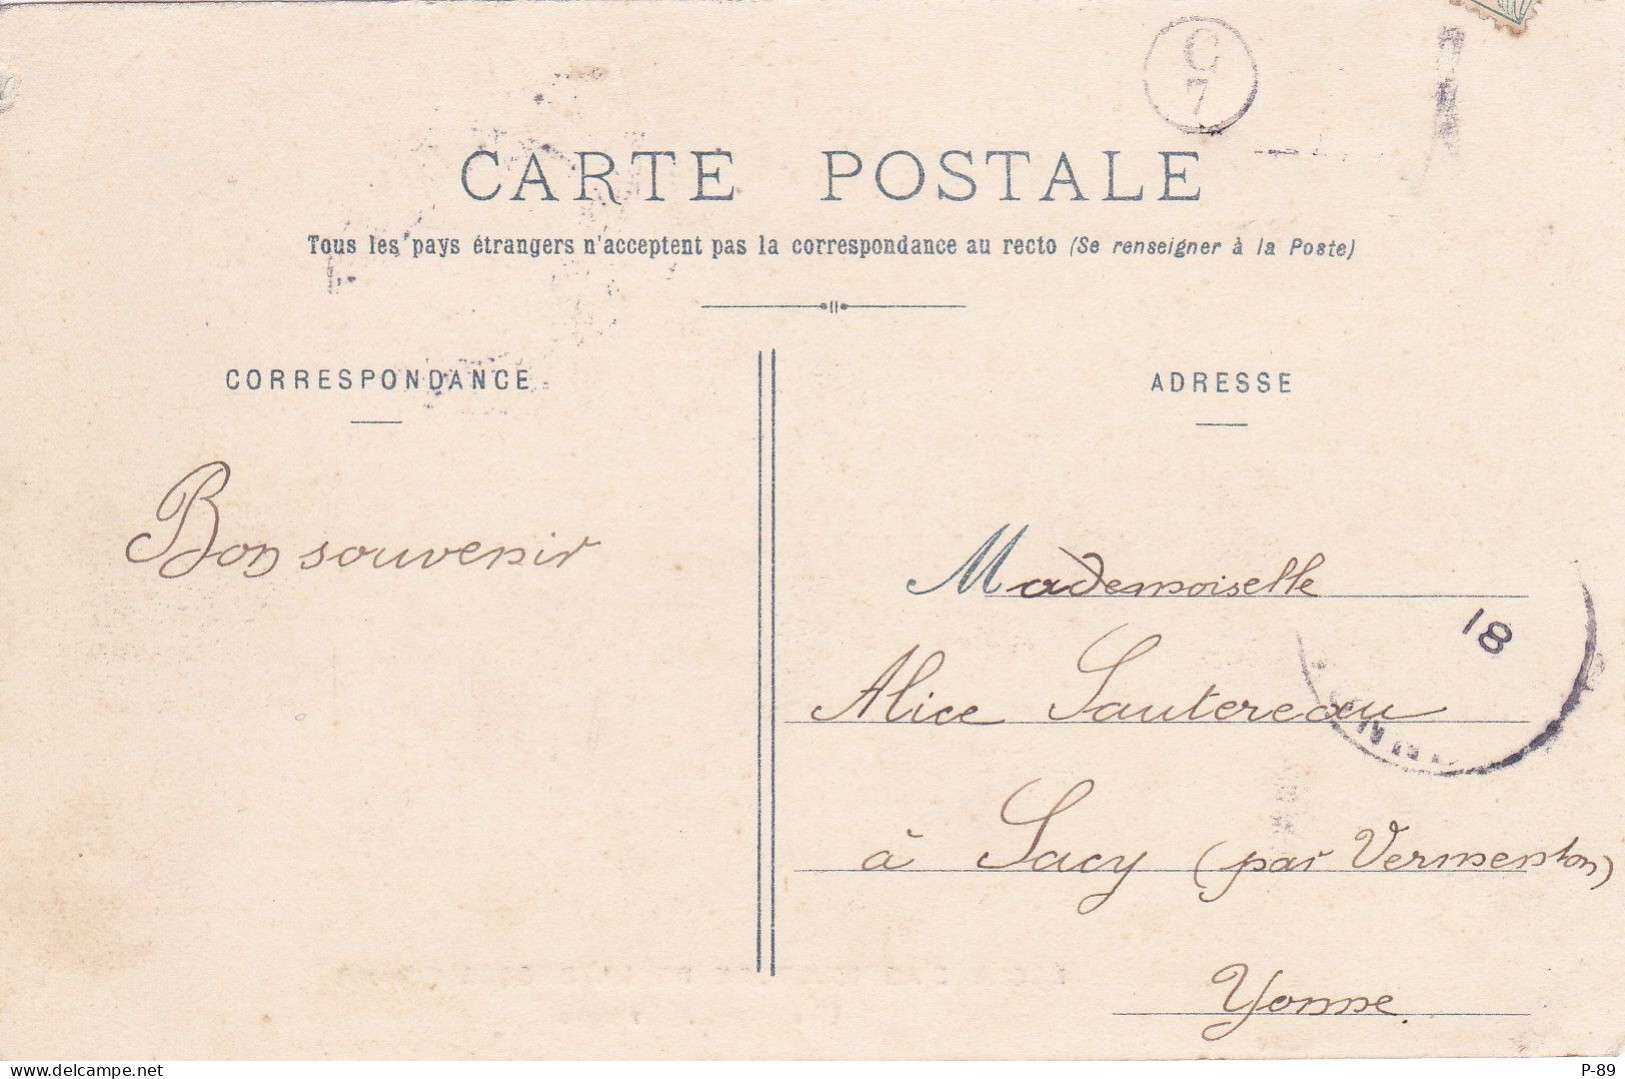 C
7
CARTE POSTALE
Tous les pays étrangers n'acceptent pas la correspondance au recto (Se renseigner à la Poste)
CORRESPONDANCE
Bon souvenir
ADRESSE
Mademoiselle
18
Alice Sautereau
à Sacy (par Vermenton)
Yonne
delcampe.net
P-89